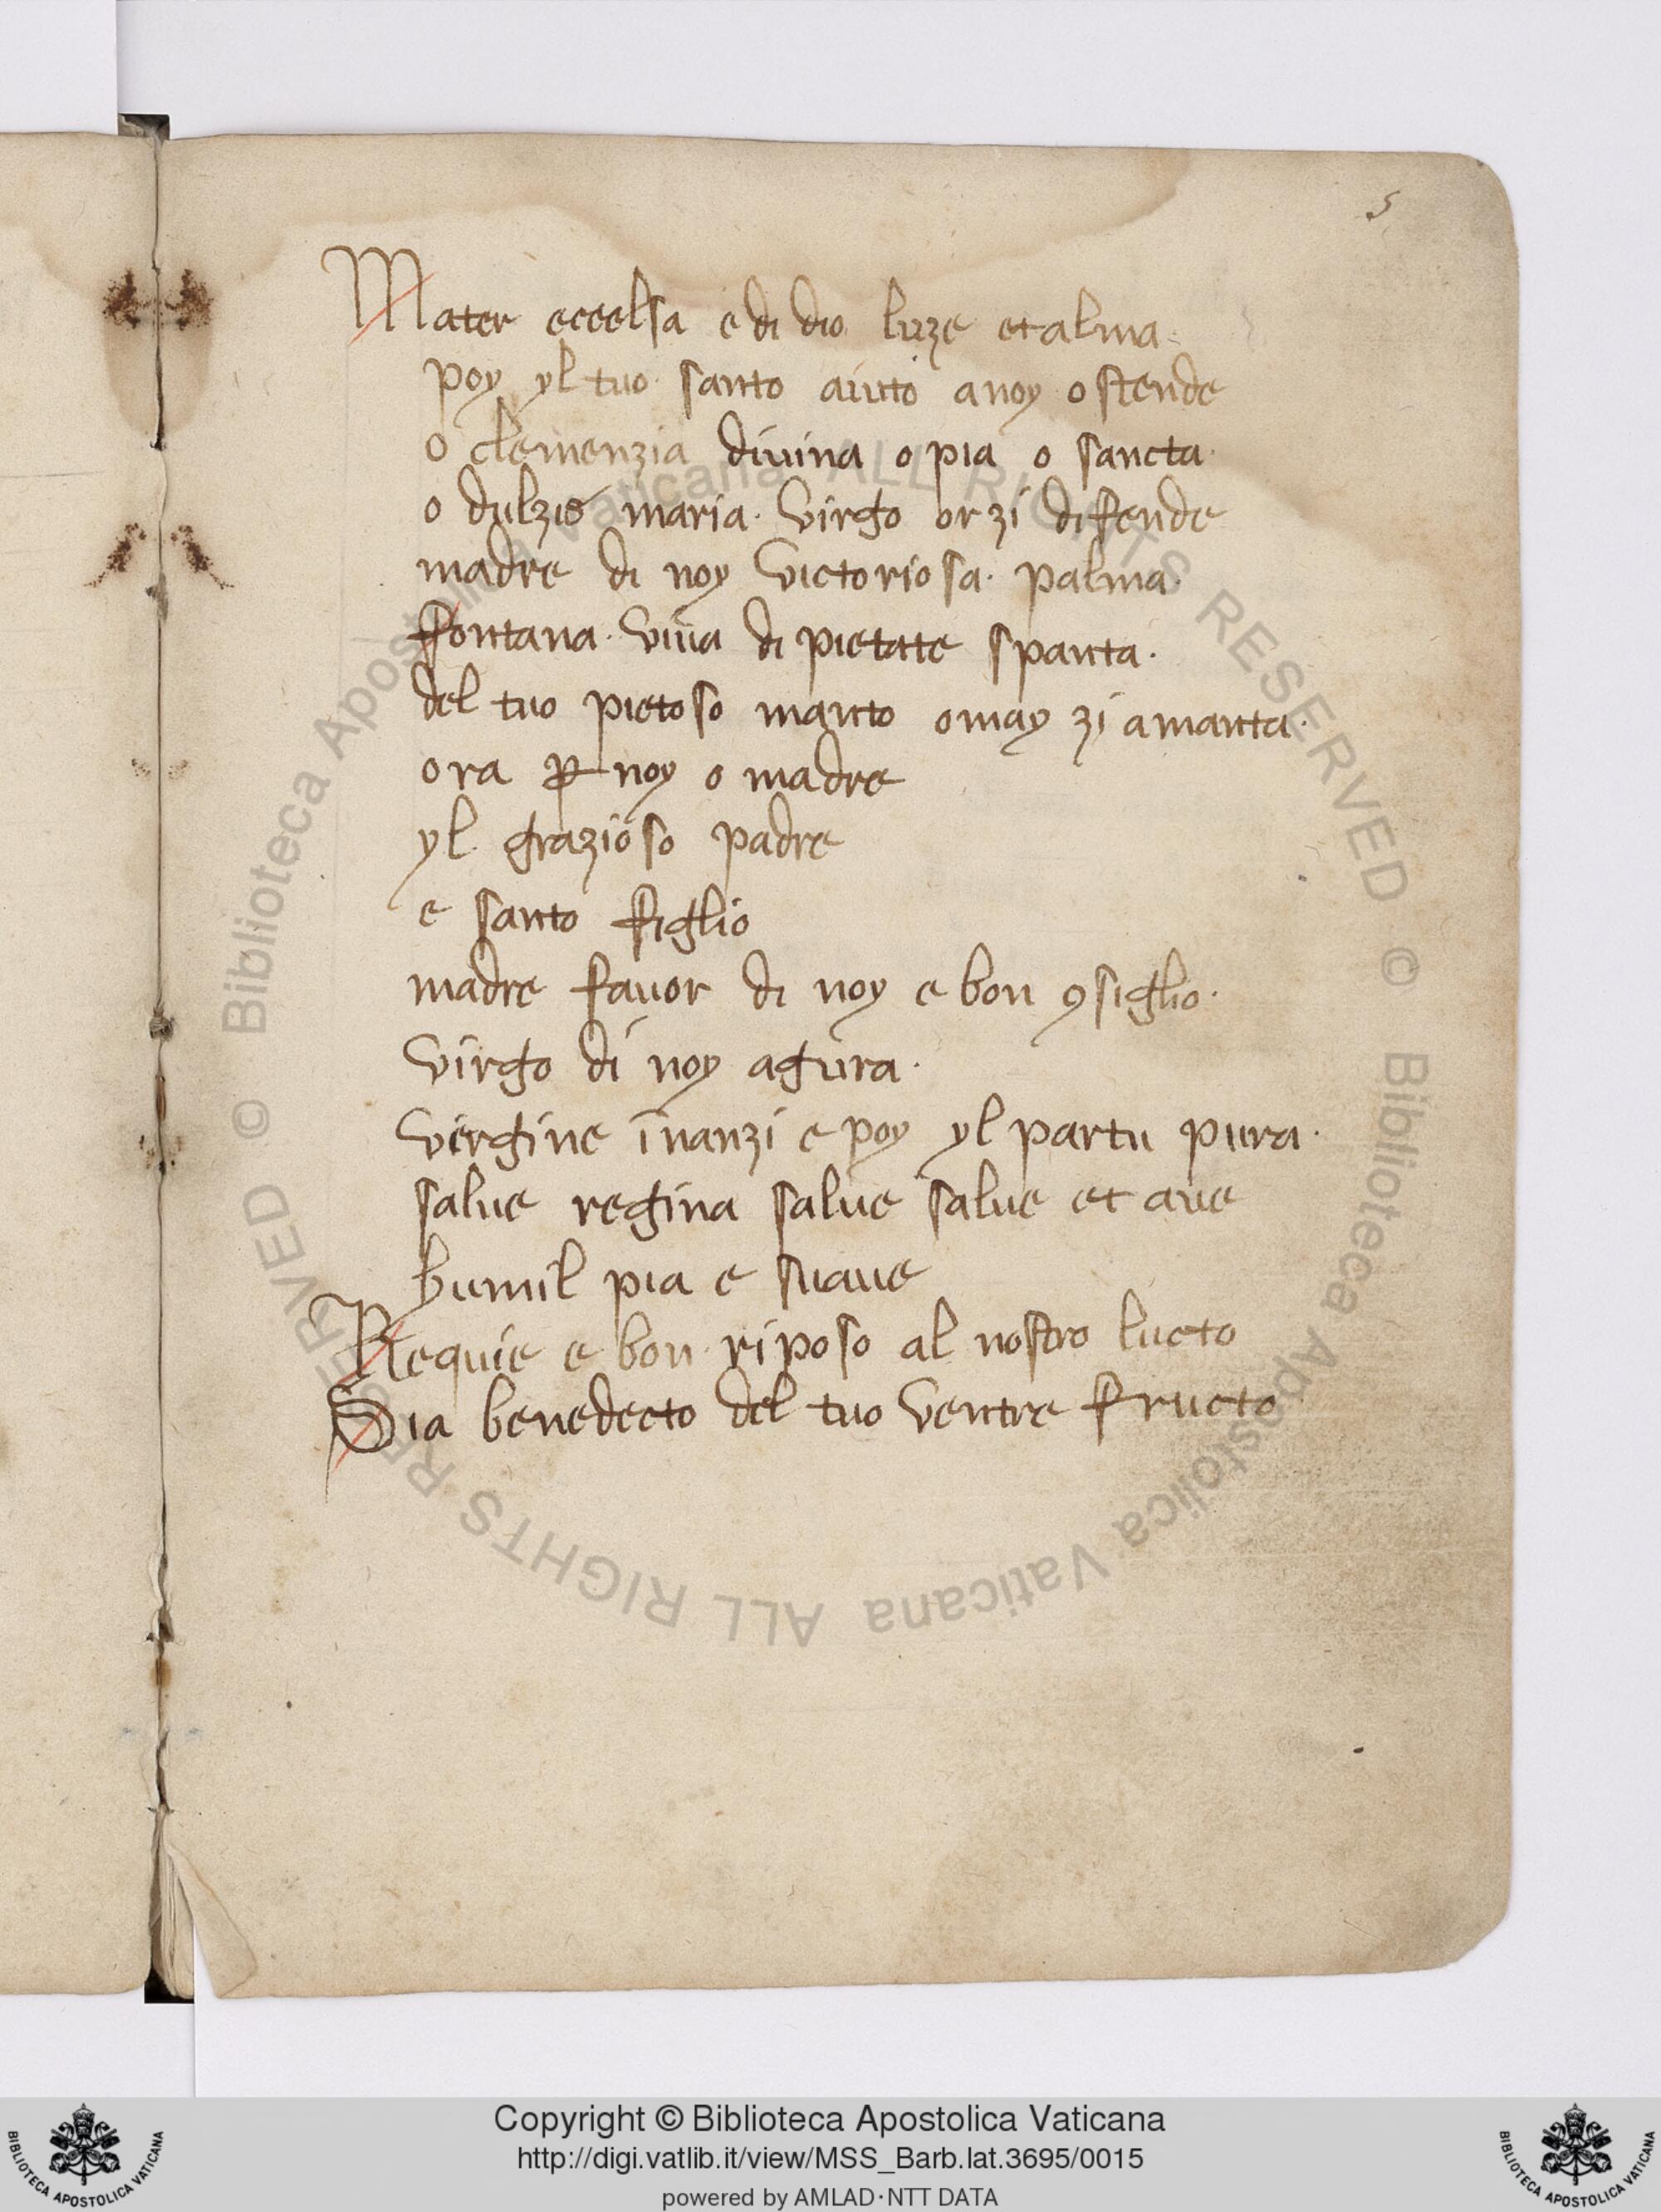 5
Mater eccelsa e di dio luze et alma.
poy yl tuo santo aiuto a noy ostende
o clemenzia diuina o pia o sancta.
o dulzis maria. Virgo or zi difende
madre di noy Victoriosa. palma.
fontana. Viua di pietate spanta.
del tuo pietoso manto omay zi amanta.
ora ꝑ noy o madre
yl grazioso padre
e santo figlio
madre fauor di noy e bon ꝯsiglio.
Virgo di noy agura.
Vergine inanzi e poy yl partu pura.
salue regina salue salue et aue
humil pia e suaue
Requie e bon riposo al nostro lucto
Sia benedecto del tuo Ventre fructo
© Biblioteca Apostolica Vaticana ALL RIGHTS RESERVED
© Biblioteca Apostolica Vaticana ALL RIGHTS RESERVED
Copyright © Biblioteca Apostolica Vaticana
http://digi.vatlib.it/view/MSS_Barb.lat.3695/0015
powered by AMLAD·NTT DATA
BIBLIOTECA APOSTOLICA VATICANA
BIBLIOTECA APOSTOLICA VATICANA